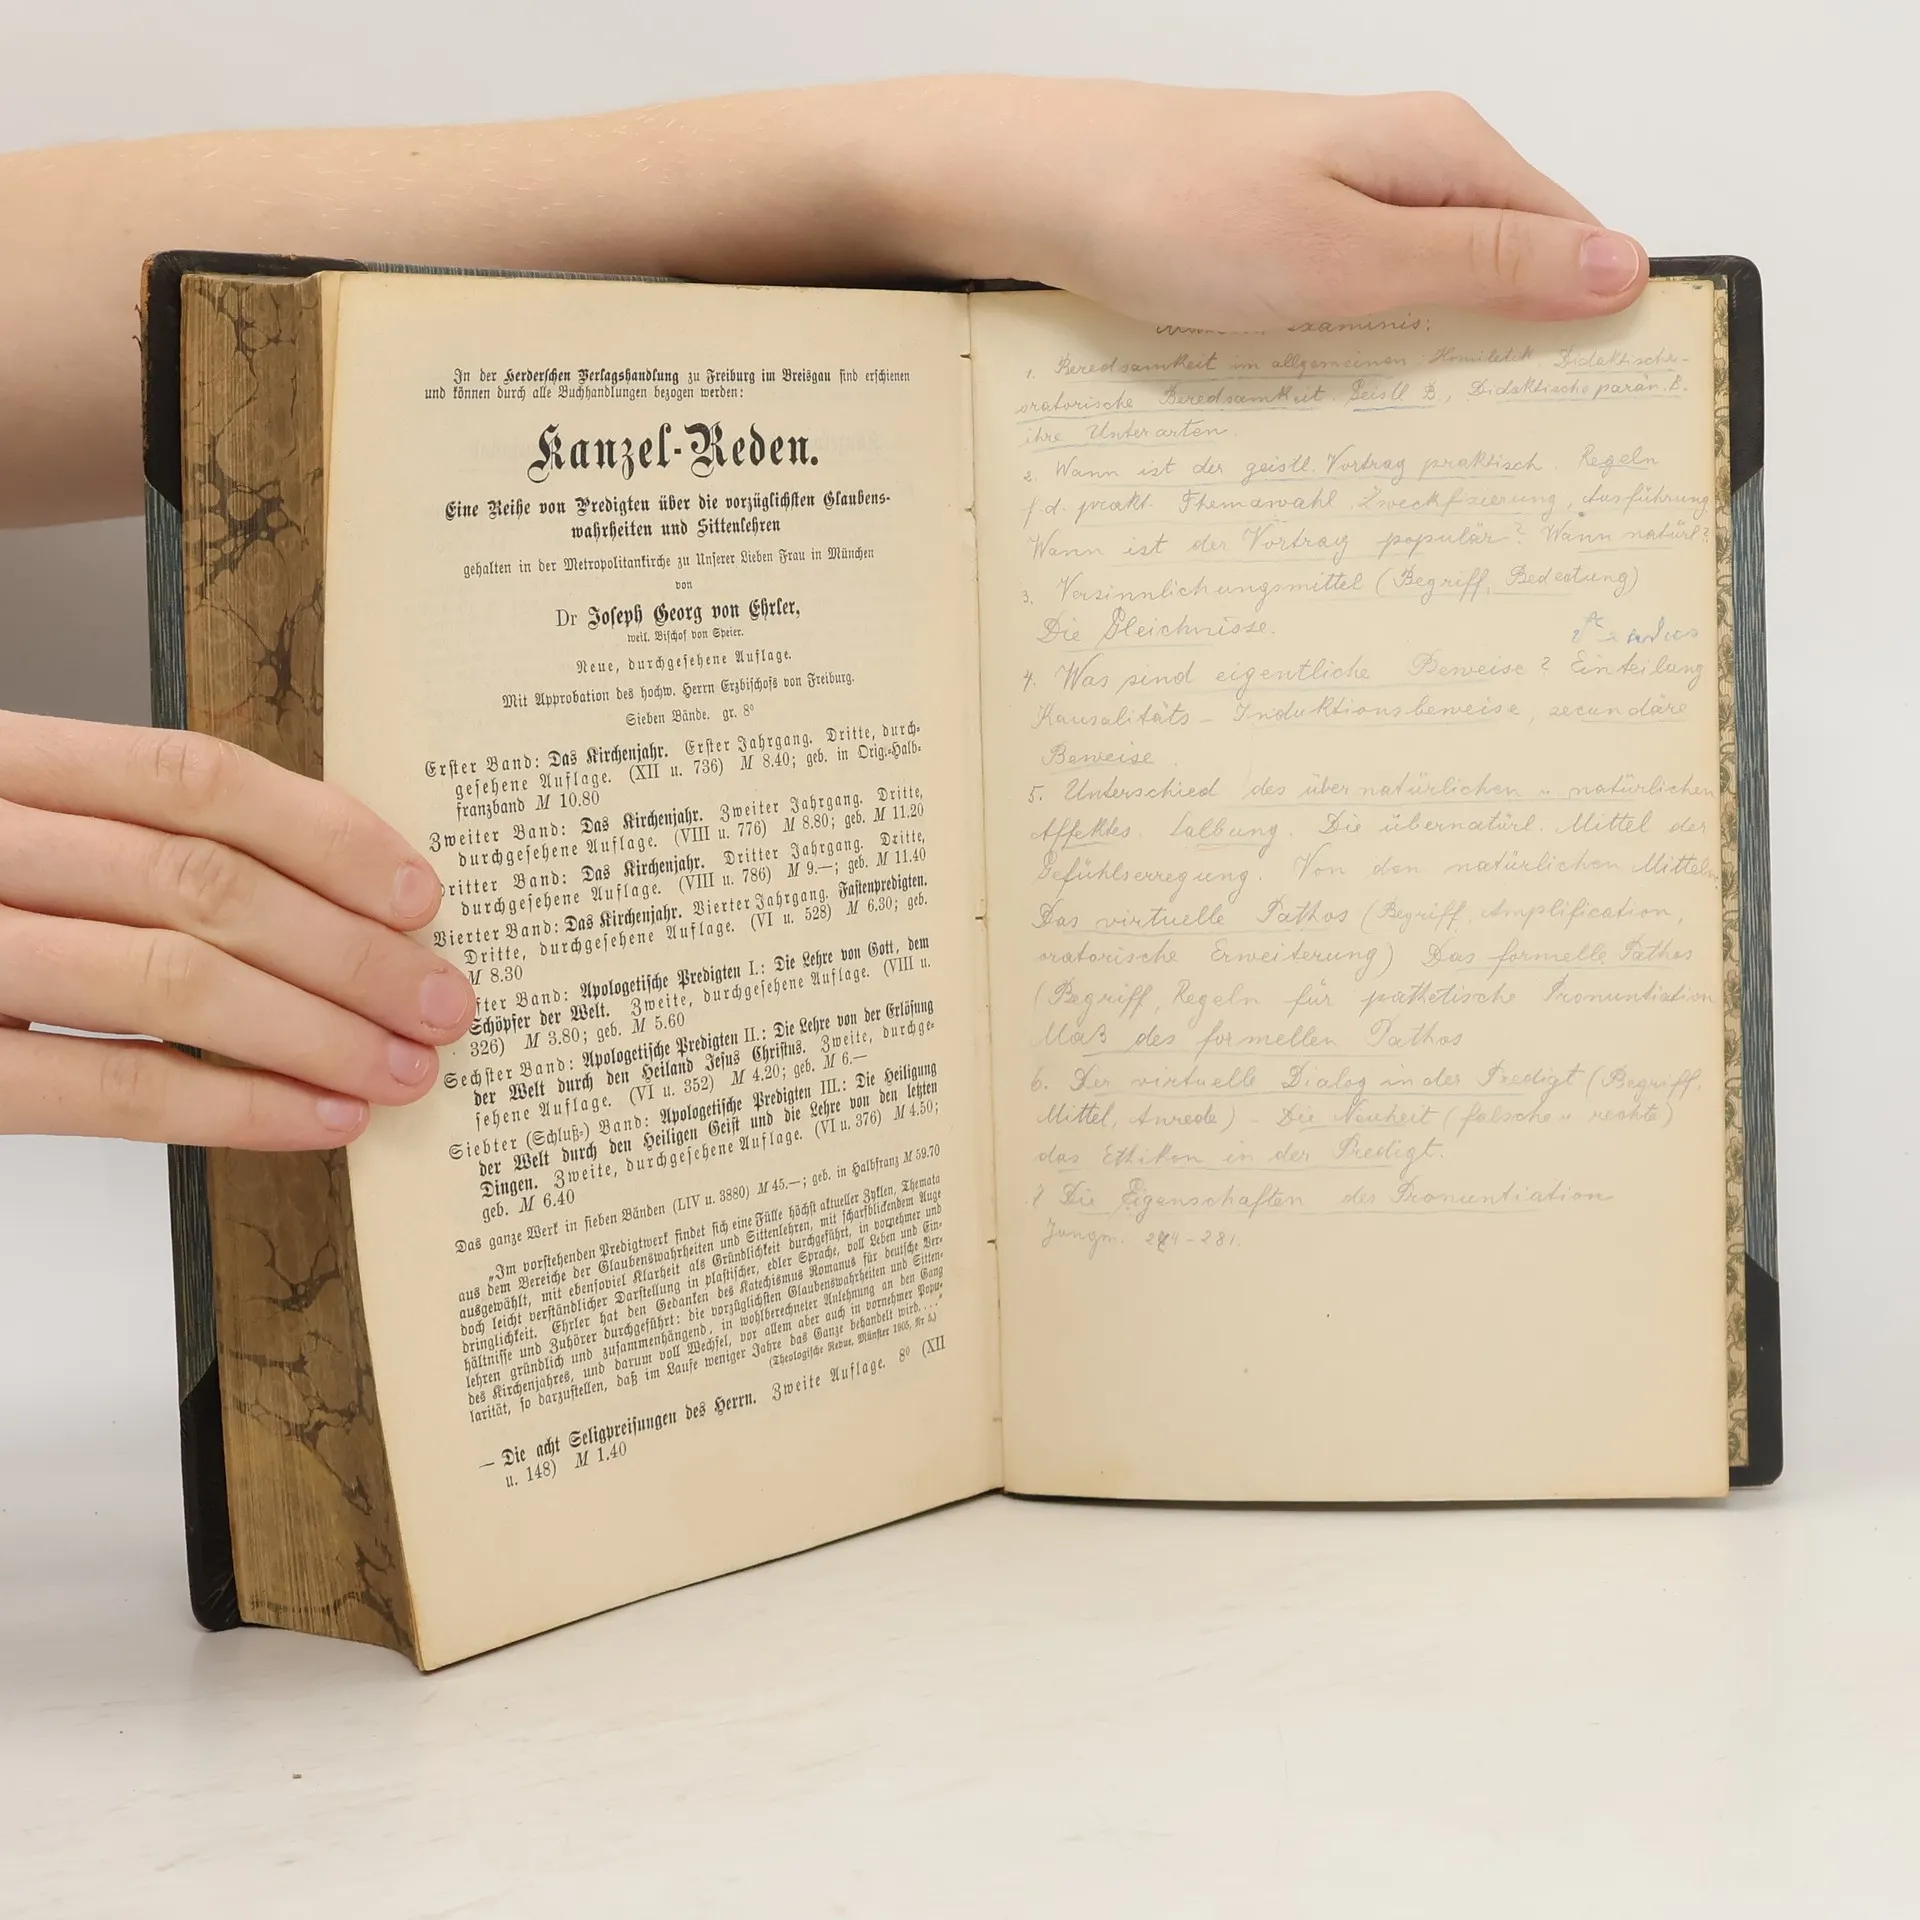 In der Herderschen Verlagshandlung zu Freiburg im Breisgau sind erschienen
und können durch alle Buchhandlungen bezogen werden:
Kanzel-Reden.
Eine Reihe von Predigten über die vorzüglichsten Glaubens-
wahrheiten und Sittenlehren
gehalten in der Metropolitankirche zu Unserer Lieben Frau in München
von
Dr Joseph Georg von Ehrler,
weil. Bischof von Speier.
Neue, durchgesehene Auflage.
Mit Approbation des hochw. Herrn Erzbischofs von Freiburg.
Sieben Bände. gr. 8º
Erster Band: Das Kirchenjahr. Erster Jahrgang. Dritte, durch-
gesehene Auflage. (XII u. 736) M 8.40; geb. in Orig.-Halb-
franzband M 10.80
Zweiter Band: Das Kirchenjahr. Zweiter Jahrgang. Dritte,
durchgesehene Auflage. (VIII u. 776) M 8.80; geb. M 11.20
Dritter Band: Das Kirchenjahr. Dritter Jahrgang. Dritte,
durchgesehene Auflage. (VIII u. 786) M 9.—; geb. M 11.40
Vierter Band: Das Kirchenjahr. Vierter Jahrgang. Fastenpredigten.
Dritte, durchgesehene Auflage. (VI u. 528) M 6.30; geb.
M 8.30
fter Band: Apologetische Predigten I.: Die Lehre von Gott, dem
Schöpfer der Welt. Zweite, durchgesehene Auflage. (VIII u.
326) M 3.80; geb. M 5.60
Sechster Band: Apologetische Predigten II.: Die Lehre von der Erlösung
der Welt durch den Heiland Jesus Christus. Zweite, durchge-
sehene Auflage. (VI u. 352) M 4.20; geb. M 6.—
Siebter (Schluß-) Band: Apologetische Predigten III.: Die Heiligung
der Welt durch den Heiligen Geist und die Lehre von den letzten
Dingen. Zweite, durchgesehene Auflage. (VI u. 376) M 4.50;
geb. M 6.40
Das ganze Werk in sieben Bänden (LIV u. 3880) M 45.—; geb. in Halbfranz M 59.70
„Im vorstehenden Predigtwerk findet sich eine Fülle höchst aktueller Zyklen, Themata
aus dem Bereiche der Glaubenswahrheiten und Sittenlehren, mit scharfblickendem Auge
ausgewählt, mit ebensoviel Klarheit als Gründlichkeit durchgeführt, in vornehmer und
doch leicht verständlicher Darstellung in plastischer, edler Sprache, voll Leben und Ein-
dringlichkeit. Ehrler hat den Gedanken des Katechismus Romanus für deutsche Ver-
hältnisse und Zuhörer durchgeführt: die vorzüglichsten Glaubenswahrheiten und Sitten-
lehren gründlich und zusammenhängend, in wohlberechneter Anlehnung an den Gang
des Kirchenjahres, und darum voll Wechsel, vor allem aber auch in vornehmer Popu-
larität, so darzustellen, daß im Laufe weniger Jahre das Ganze behandelt wird. . . .“
(Theologische Revue, Münster 1905, Nr 5.)
— Die acht Seligpreisungen des Herrn. Zweite Auflage. 8º (XII
u. 148) M 1.40
examinis:
1. Beredsamkeit im allgemeinen. Homiletik. Didaktische-
oratorische Beredsamkeit. Geistl B, Didaktische parän. B.
ihre Unterarten.
2. Wann ist der geistl. Vortrag praktisch. Regeln
f. d. prakt. Themawahl, Zweckfixierung, Ausführung
Wann ist der Vortrag populär? Wann natürl?
3. Versinnlichungsmittel (Begriff, Bedeutung)
Die Gleichnisse.
4. Was sind eigentliche Beweise? Einteilung
Kausalitäts- Induktionsbeweise, secundäre
Beweise
5. Unterschied des übernatürlichen u natürlichen
Affektes. Salbung. Die übernatürl. Mittel der
Gefühlserregung. Von den natürlichen Mitteln.
Das virtuelle Pathos (Begriff, Amplification,
oratorische Erweiterung) Das formelle Pathos
(Begriff, Regeln für pathetische Pronuntiation
Maß des formellen Pathos
6. Der virtuelle Dialog in der Predigt (Begriff,
Mittel, Anrede) - Die Neuheit (falsche u rechte)
das Ethikon in der Predigt.
7 Die Eigenschaften des Pronuntiation
Jungm. - 281.